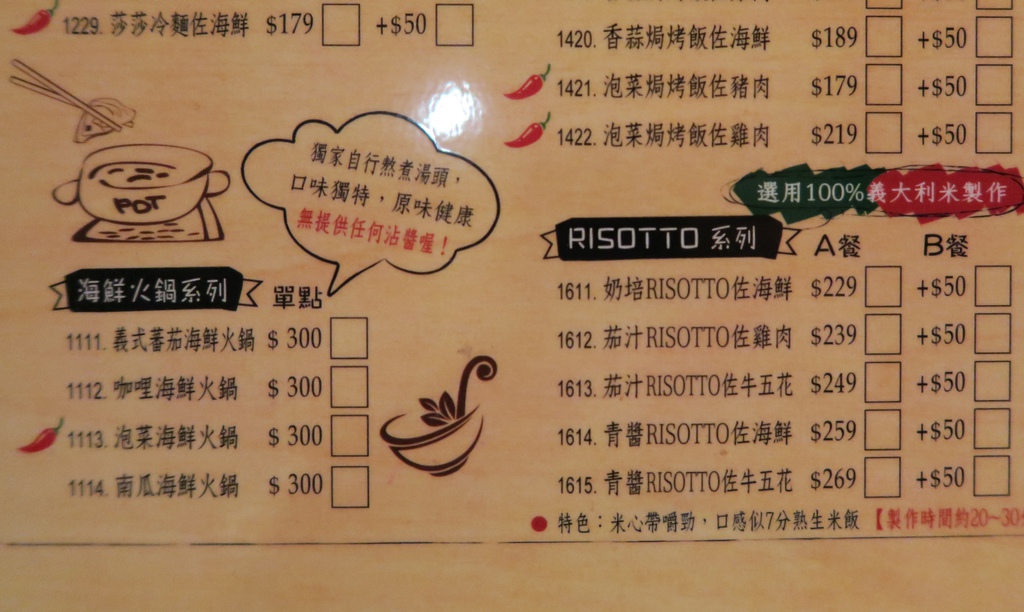 1229. 莎莎冷麵佐海鮮 $179 +$50
POT
獨家自行熬煮湯頭，
口味獨特，原味健康
無提供任何沾醬喔！
海鮮火鍋系列 單點
1111. 義式蕃茄海鮮火鍋 $ 300
1112. 咖哩海鮮火鍋 $ 300
1113. 泡菜海鮮火鍋 $ 300
1114. 南瓜海鮮火鍋 $ 300
1420. 香蒜焗烤飯佐海鮮 $189 +$50
1421. 泡菜焗烤飯佐豬肉 $179 +$50
1422. 泡菜焗烤飯佐雞肉 $219 +$50
選用100%義大利米製作
RISOTTO 系列 A餐 B餐
1611. 奶培RISOTTO佐海鮮 $229 +$50
1612. 茄汁RISOTTO佐雞肉 $239 +$50
1613. 茄汁RISOTTO佐牛五花 $249 +$50
1614. 青醬RISOTTO佐海鮮 $259 +$50
1615. 青醬RISOTTO佐牛五花 $269 +$50
● 特色：米心帶嚼勁，口感似7分熟生米飯【製作時間約20~30